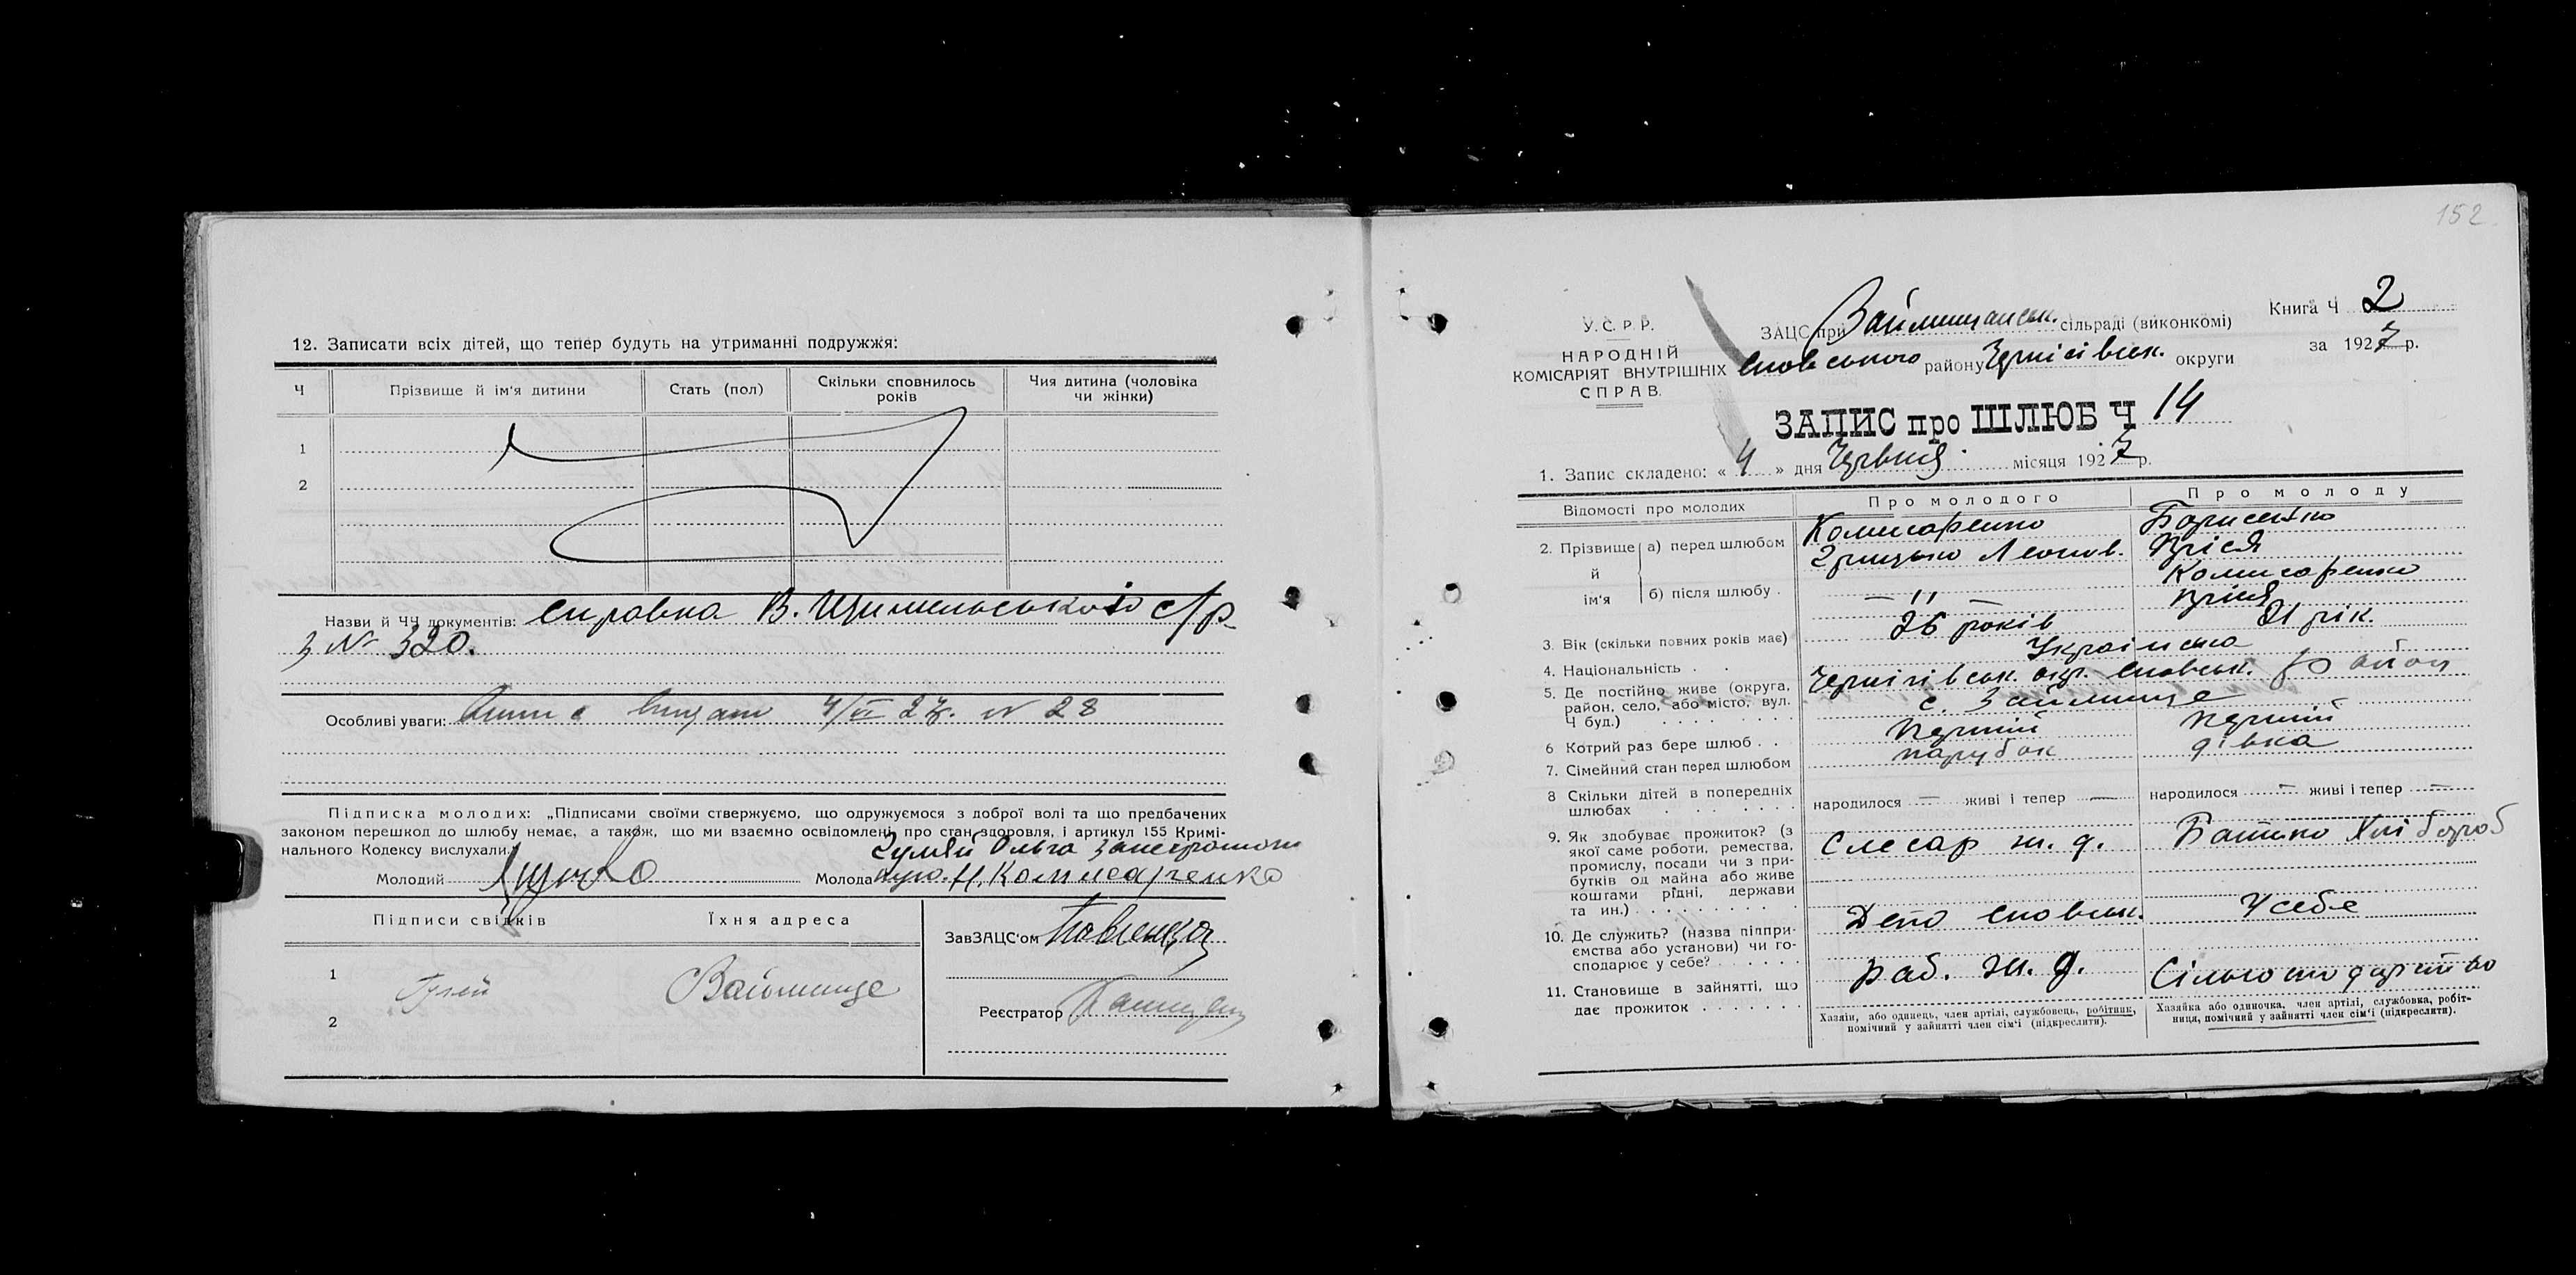 12. Записати всіх дітей, що тепер будуть на утриманні подружжя:
Ч Прізвище й ім'я дитини Стать (пол) Скільки сповнилось років Чия дитина (чоловіка чи жінки)
1
2
Назви й ЧЧ документів: справка В. Щимельської с/р
з № 320.
Особливі уваги: видани 4/VI 27. № 28
Підписка молодих: „Підписами своїми стверджуємо, що одружуємося з доброї волі та що предбачених
законом перешкод до шлюбу немає, а також, що ми взаємно освідомлені про стан здоровля, і артикул 155 Кримі-
нального Кодексу вислухали."
Ольга
Молодий Молода Н. Комисаренко
Підписи свідків Їхня адреса
ЗавЗАЦС'ом
1 Займище
Реєстратор
2
152
У.С.Р.Р.
НАРОДНІЙ
КОМІСАРІЯТ ВНУТРІШНІХ
СПРАВ.
ЗАЦС при Займищанськ. сільраді (виконкомі)
Сновського району Чернігівськ. округи
Книга Ч 2
за 1927 р.
ЗАПИС про ШЛЮБ Ч 14
1. Запис складено: « 4 » дня Червня місяця 1927 р.
Відомості про молодих Про молодого Про молоду
2. Прізвище й ім'я а) перед шлюбом Комисаренко Грицько Леонов. Борисенко Пріся
б) після шлюбу . — " — Комисаренко Пріся
3. Вік (скільки повних років має) 26 років 21 рік.
4. Національність . . Українська
5. Де постійно живе (округа, район, село, або місто, вул. Ч буд.) Чернігівськ. окр. Сновськ. район
с. Займище
6 Котрий раз бере шлюб . . Перший Перший
7. Сімейний стан перед шлюбом парубок дівка
8 Скільки дітей в попередніх шлюбах народилося — живі і тепер — народилося — живі і тепер —
9. Як здобуває прожиток? (з якої саме роботи, ремества, промислу, посади чи з прибутків од майна або живе коштами рідні, держави та ин.) Слесар ж. д. Батько Хлібороб
10. Де служить? (назва підприємства або установи) чи господарює у себе? Депо Сновськ. У себе
11. Становище в зайнятті, що дає прожиток Раб. ж. д.
Хазяїн, або одинець, член артілі, службовець, робітник, помічний у зайнятті член сім'ї (підкреслити).
Хазяйка або одиночка, член артілі, службовка, робітниця, помічний у зайнятті член сім'ї (підкреслити).